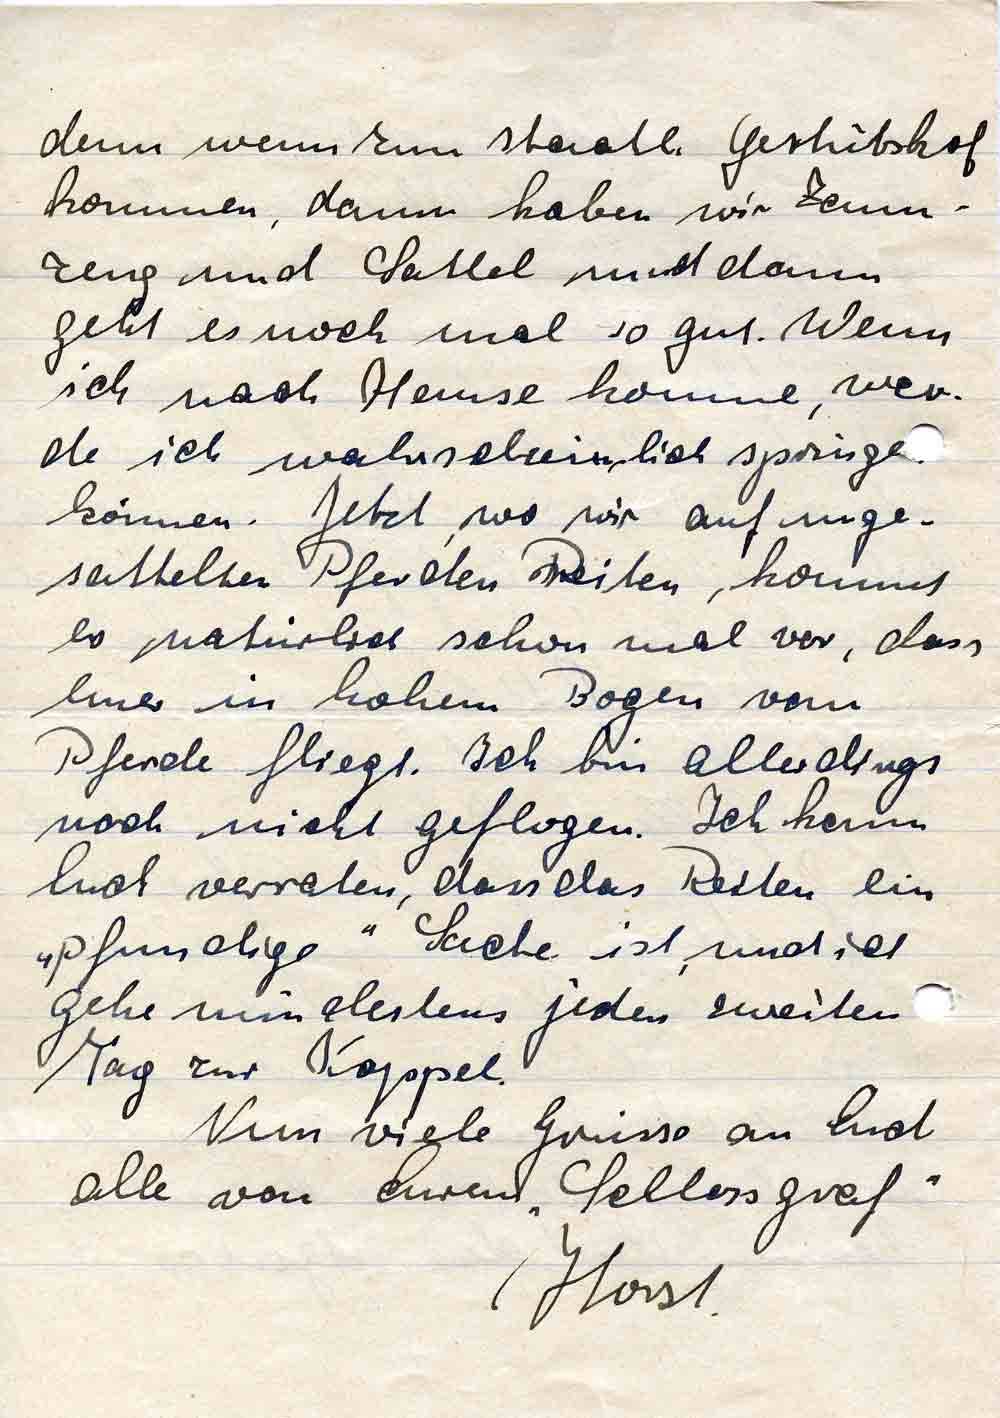 denn wenn zum staatl. Gestütshof
kommen, dann haben wir Zaum-
zeug und Sattel und dann
geht es noch mal so gut. Wenn
ich nach Hause komme, wer-
de ich wahrscheinlich springe
können. Jetzt, wo wir auf unge-
sattelten Pferden Reiten, kommt
es natürlich schon mal vor, dass
einer in hohem Bogen vom
Pferde fliegt. Ich bin allerdings
noch nicht geflogen. Ich kann
Euch verraten, dass das Reiten ein
„pfundige“ Sache ist, und ich
gehe mindestens jeden zweiten
Tag zur Koppel.
Nun viele Grüsse an Euch
alle von eurem „Schlossgraf“
Horst.